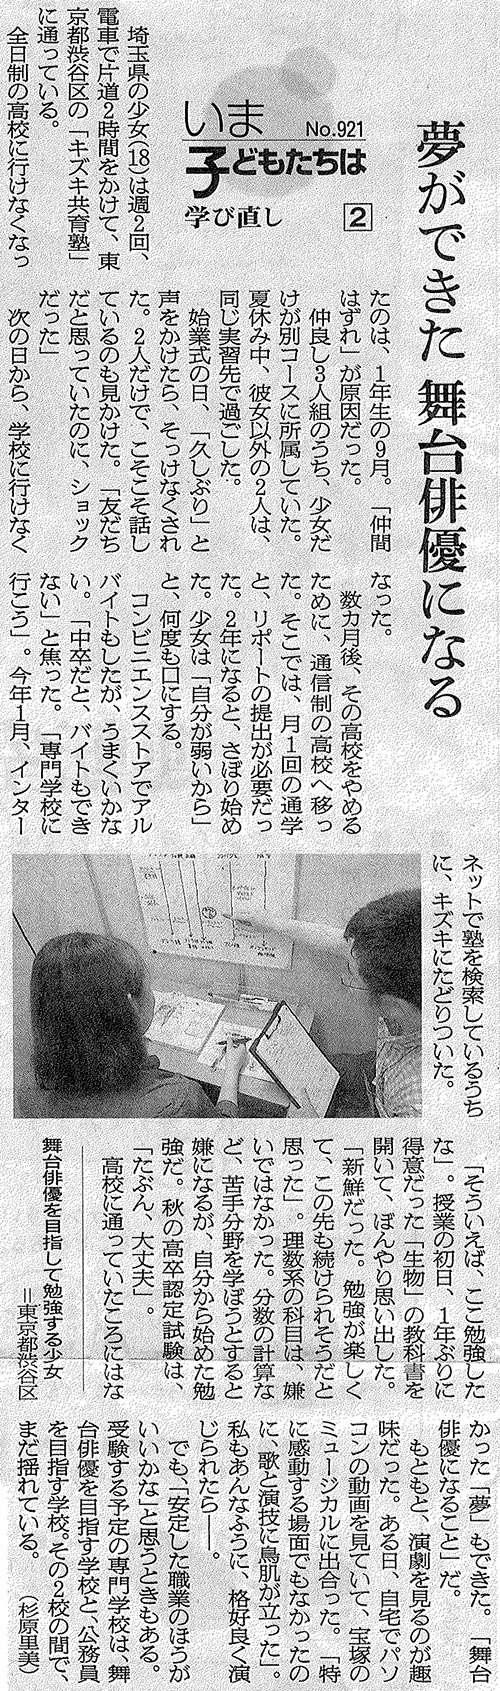 夢ができた 舞台俳優になる
いま
No.921
子どもたちは
学び直し 2
埼玉県の少女(18)は週2回、
電車で片道2時間をかけて、東
京都渋谷区の「キズキ共育塾」
に通っている。
全日制の高校に行けなくなっ
たのは、1年生の9月。「仲間
はずれ」が原因だった。
仲良し3人組のうち、少女だ
けが別コースに所属していた。
夏休み中、彼女以外の2人は、
同じ実習先で過ごした。
始業式の日、「久しぶり」と
声をかけたら、そっけなくされ
た。2人だけで、こそこそ話し
ているのも見かけた。「友だち
だと思っていたのに、ショック
だった」
次の日から、学校に行けなく
なった。
数カ月後、その高校をやめる
ために、通信制の高校へ移っ
た。そこでは、月1回の通学
と、リポートの提出が必要だっ
た。2年になると、さぼり始め
た。少女は「自分が弱いから」
と、何度も口にする。
コンビニエンスストアでアル
バイトもしたが、うまくいかな
い。「中卒だと、バイトもでき
ない」と焦った。「専門学校に
行こう」。今年1月、インター
ネットで塾を検索しているうち
に、キズキにたどりついた。
「そういえば、ここ勉強した
な」。授業の初日、1年ぶりに
得意だった「生物」の教科書を
開いて、ぼんやり思い出した。
「新鮮だった。勉強が楽しく
て、この先も続けられそうだと
思った」。理数系の科目は、嫌
いではなかった。分数の計算な
ど、苦手分野を学ぼうとすると
嫌になるが、自分から始めた勉
強だ。秋の高卒認定試験は、
「たぶん、大丈夫」。
高校に通っていたころにはな
かった「夢」もできた。「舞台
俳優になること」だ。
もともと、演劇を見るのが趣
味だった。ある日、自宅でパソ
コンの動画を見ていて、宝塚の
ミュージカルに出合った。「特
に感動する場面でもなかったの
に、歌と演技に鳥肌が立った」。
私もあんなふうに、格好良く演
じられたら――。
でも、「安定した職業のほうが
いいかな」と思うときもある。
受験する予定の専門学校は、舞
台俳優を目指す学校と、公務員
を目指す学校。その2校の間で、
まだ揺れている。　(杉原里美)
舞台俳優を目指して勉強する少女
＝東京都渋谷区